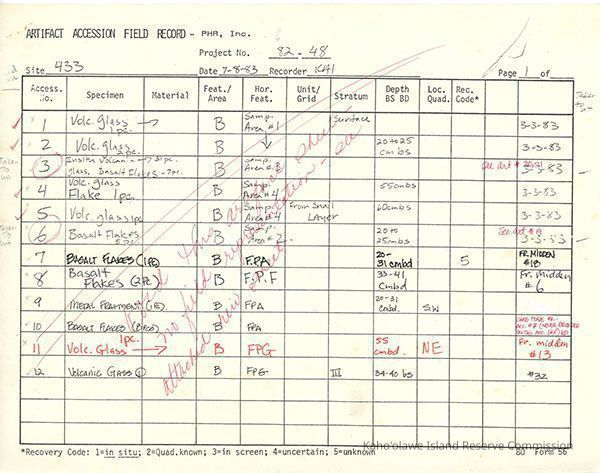 ARTIFACT ACCESSION FIELD RECORD - PHR, Inc.
Project No. 82-48
Site 433 Date 7-8-83 Recorder KAI Page 1 of
Access. No. Specimen Material Feat./ Area Hor. Feat. Unit/ Grid Stratum Depth BS BD Loc. Quad. Rec. Code*
1 Volc. glass 1 pc. B Samp. Area #1 Surface 3-3-83
2 Volc. glass 2 pc. B 20 to 25 cmbs 3-3-83
3 Insitu Volcanic glass, Basalt Flakes - 7pc. B Samp. Area # See Art # 20,21 3-3-83
4 Volc. glass Flake 1 pc. B Samp. Area #4 55cmbs 3-3-83
5 Volc. glass 1pc B Samp. Area #4 From Snail Layer 60cmbs 3-3-83
6 Basalt Flakes 5 pc. B Samp. Area # 2 20 to 25cmbs See Art # 19 3-3-83
7 BASALT FLAKES (1PC) B FPA 20-31 cmbd 5 FR. MIDDEN #18
8 Basalt Flakes (2Pc) B F.P.F 33-41 cmbd Fr. midden # 6
9 METAL FRAGMENT (1PC) B FPA 20-31 cmbd. SW
10 BASALT FLAKES B FPA
11 1pc. Volc. Glass B FPG 55 cmbd. NE Fr. midden #13
12 Volcanic Glass 1 B FPG III 34-40 bs #32
*Recovery Code: 1=in situ; 2=Quad.known; 3=in screen; 4=uncertain; 5=unknown 80 Form 56
Kaho'olawe Island Reserve Commission